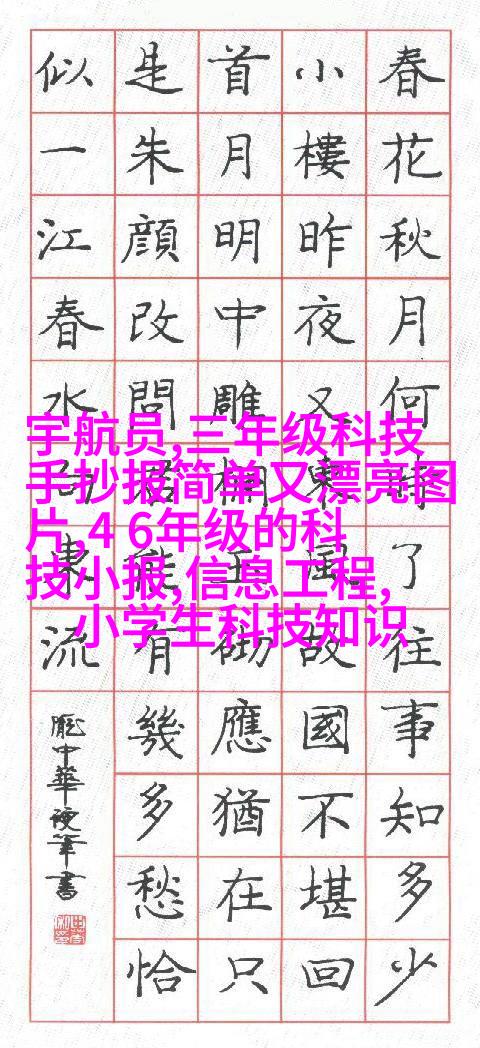 春花秋月何時了往事知多少
小樓昨夜又東風故國不堪回
首月明中雕欄玉砌應猶在只
是朱顔改問君能有幾多愁恰
似一江春水向東流
龐中華硬筆書
宇航员,三年级科技
手抄报简单又漂亮图
片,4 6年级的科
技小报,信息工程,
小学生科技知识